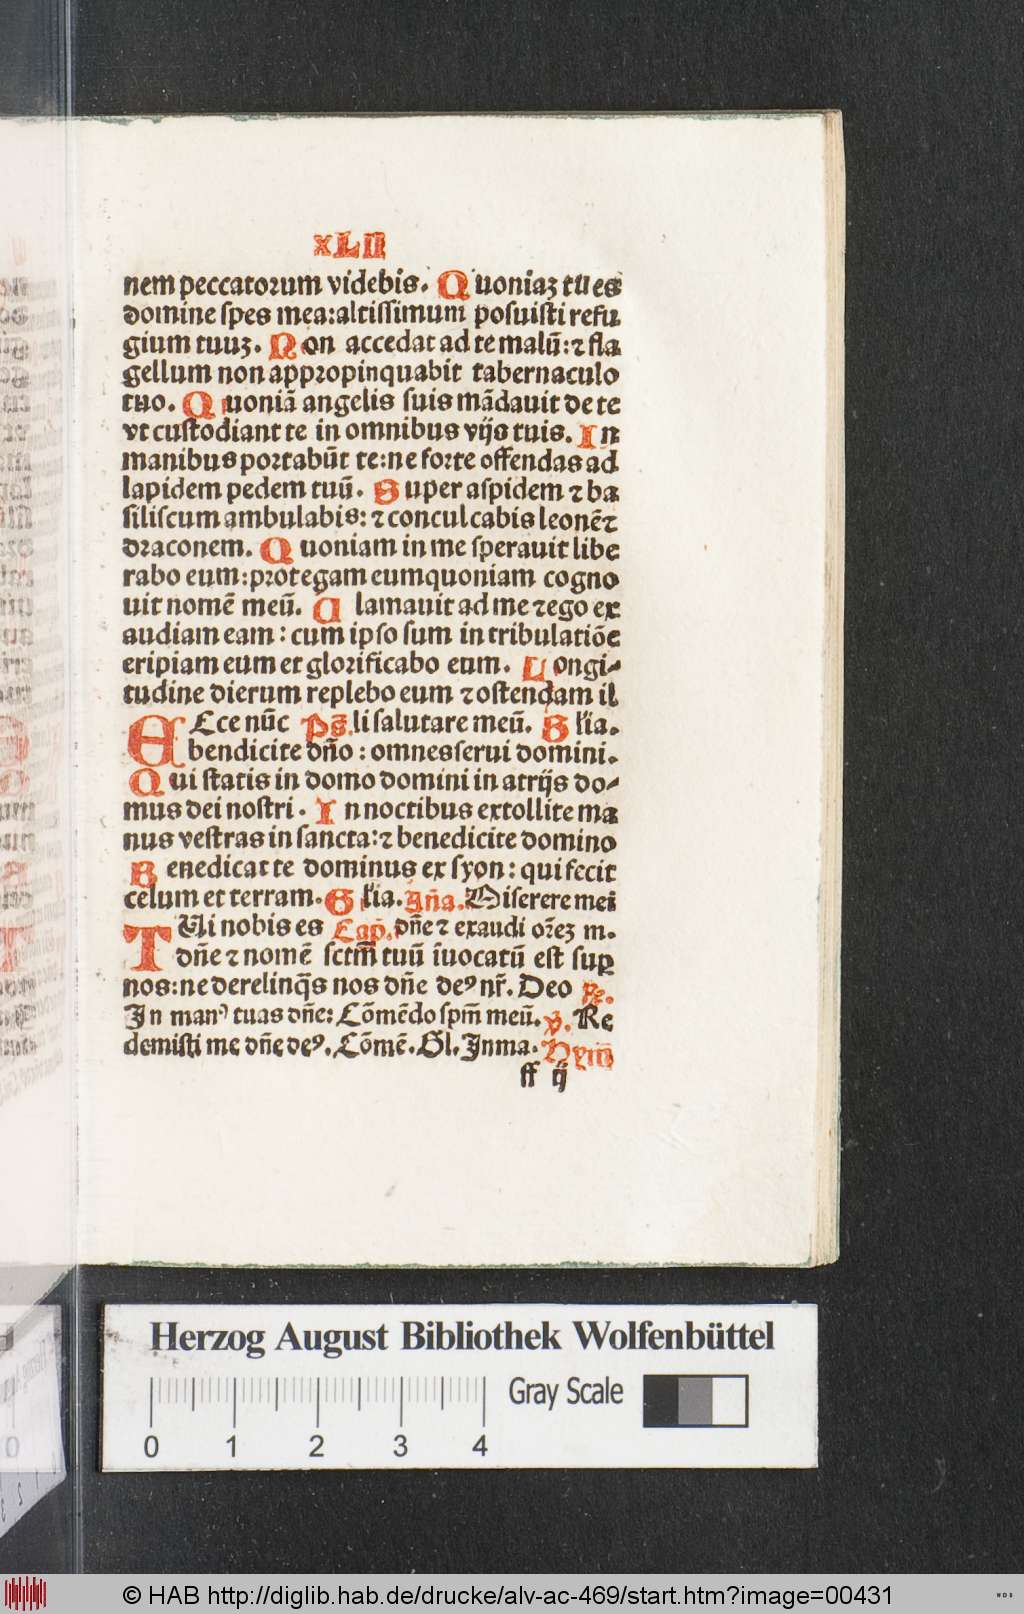 xLII
nem peccatorum videbis. Quoniaꝫ tu es
domine spes mea:altissimum posuisti refu
gium tuuꝫ. Non accedat ad te malū:⁊ fla
gellum non appropinquabit tabernaculo
tuo. Quoniā angelis suis mādauit de te
vt custodiant te in omnibus vijs tuis. In
manibus portabūt te:ne forte offendas ad
lapidem pedem tuū. Super aspidem ⁊ ba
siliscum ambulabis: ⁊ conculcabis leonē⁊
draconem. Quoniam in me sperauit libe
rabo eum:protegam eumquoniam cogno
uit nomē meū. Clamauit ad me ⁊ego ex
audiam eam: cum ipso sum in tribulatiōe
eripiam eum et glorificabo eum. Longi-
tudine dierum replebo eum ⁊ ostendam il
ECce nūc Ps̄.li salutare meū. Gl'ia.
bendicite dn̄o: omnesserui domini.
Qui statis in domo domini in atrijs do-
mus dei nostri. In noctibus extollite ma
nus vestras in sancta:⁊ benedicite domino
Benedicat te dominus ex syon: qui fecit
celum et terram. Gl'ia. Ān̄a. Miserere mei
TUi nobis es Cap̄. dn̄e ⁊ exaudi or̄eꝫ m.
dn̄e ⁊ nomē sctm̄ tuū īuocatū est suꝑ
nos:ne derelinq̄s nos dn̄e deꝰ nr̄. Deo ꝶ.
In manꝰ tuas dn̄e: Cōmēdo spm̄ meū. ℣. Re
demisti me dn̄e deꝰ. Cōmē. Gl. Inma. Hym̄
ff ij
Herzog August Bibliothek Wolfenbüttel
Gray Scale
0 1 2 3 4
© HAB http://diglib.hab.de/drucke/alv-ac-469/start.htm?image=00431